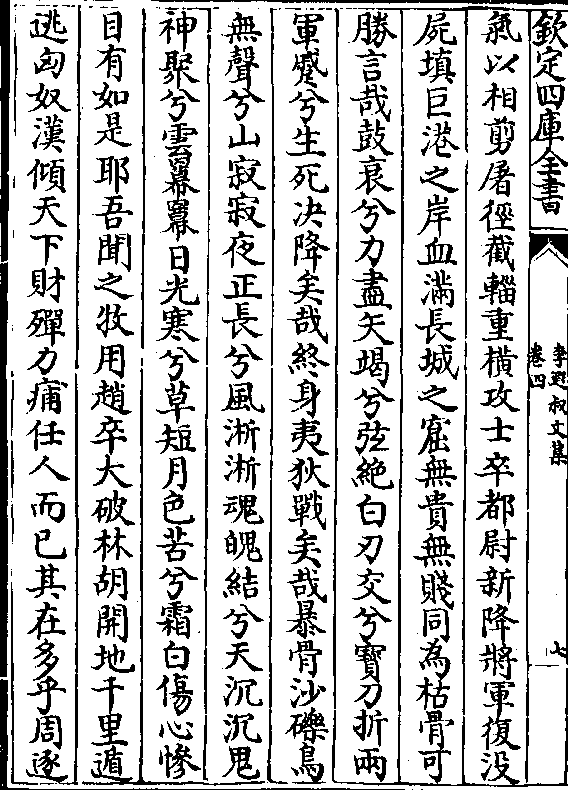 欽定四庫全書
李遐叔文集
卷四
七
氣以相剪屠徑截輜重横攻士卒都尉新降將軍復没
屍填巨港之岸血滿長城之窟無貴無賤同為枯骨可
勝言哉鼓衰兮力盡矢竭兮弦絶白刃交兮寶刀折兩
軍蹙兮生死決降矣哉終身夷狄戰矣哉暴骨沙礫鳥
無聲兮山寂寂夜正長兮風淅淅魂魄結兮天沉沉鬼
神聚兮雲羃羃日光寒兮草短月色苦兮霜白傷心慘
目有如是耶吾聞之牧用趙卒大破林胡開地千里遁
逃匈奴漢傾天下財殫力痡任人而已其在多乎周逐